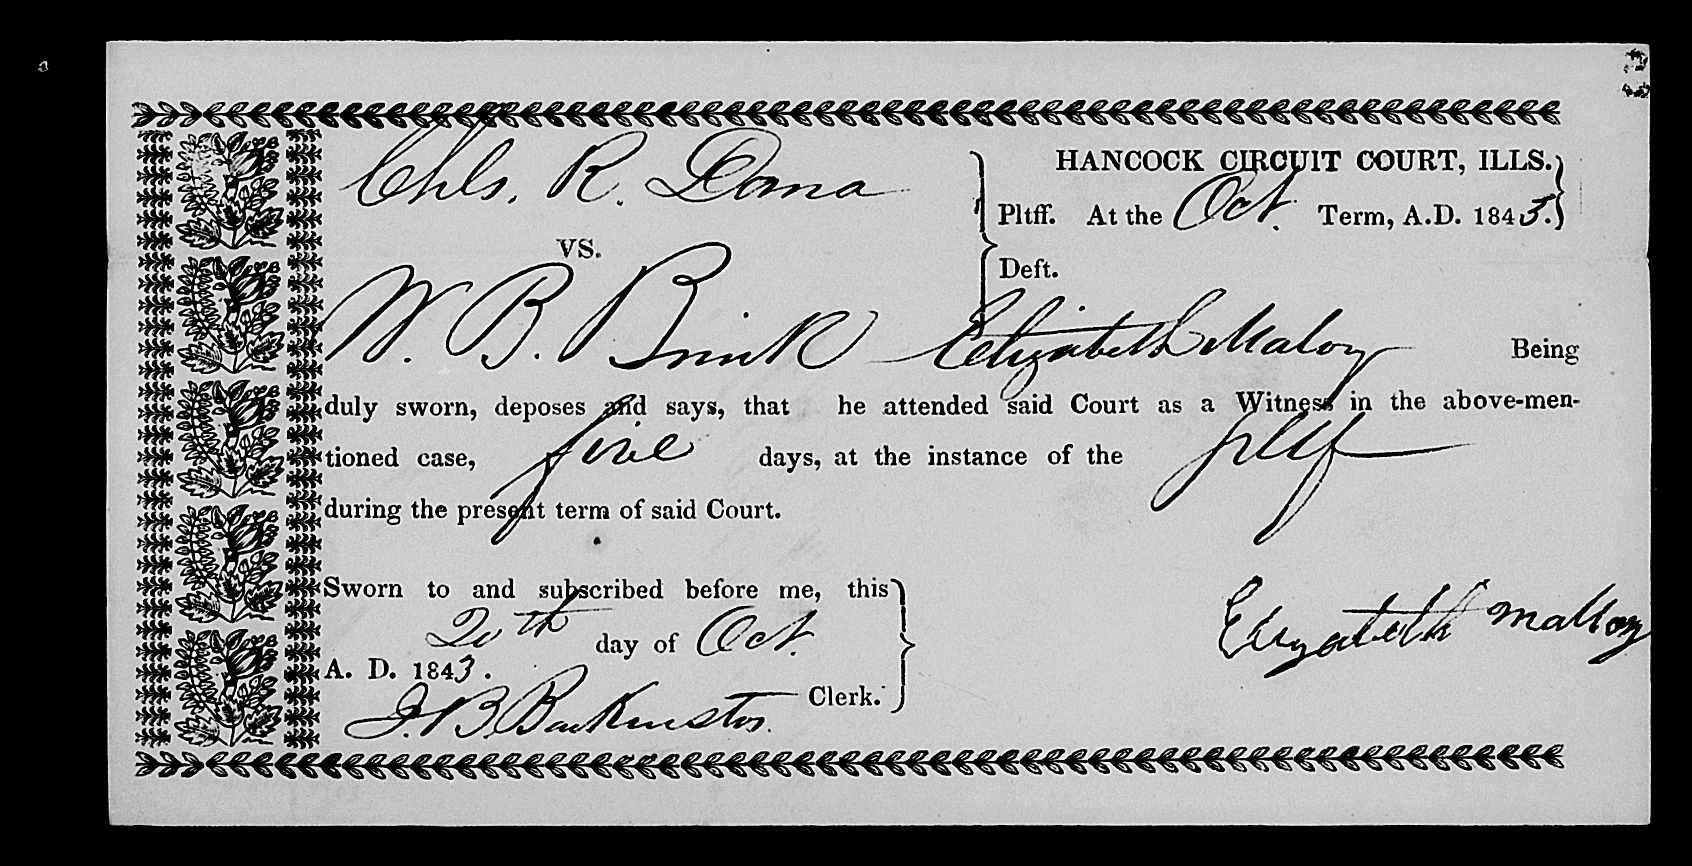 Chls. R. Dana
HANCOCK CIRCUIT COURT, ILLS.
Pltff. At the Oct. Term, A.D. 1843.
VS.
Deft.
W. B. Brink Elizabeth Maloy Being
duly sworn, deposes and says, that he attended said Court as a Witness in the above-men-
tioned case, five days, at the instance of the pltf
during the present term of said Court.
Sworn to and subscribed before me, this
20th day of Oct.
A. D. 1843.
Elizabeth Malloy
J. B. Backenstos. Clerk.